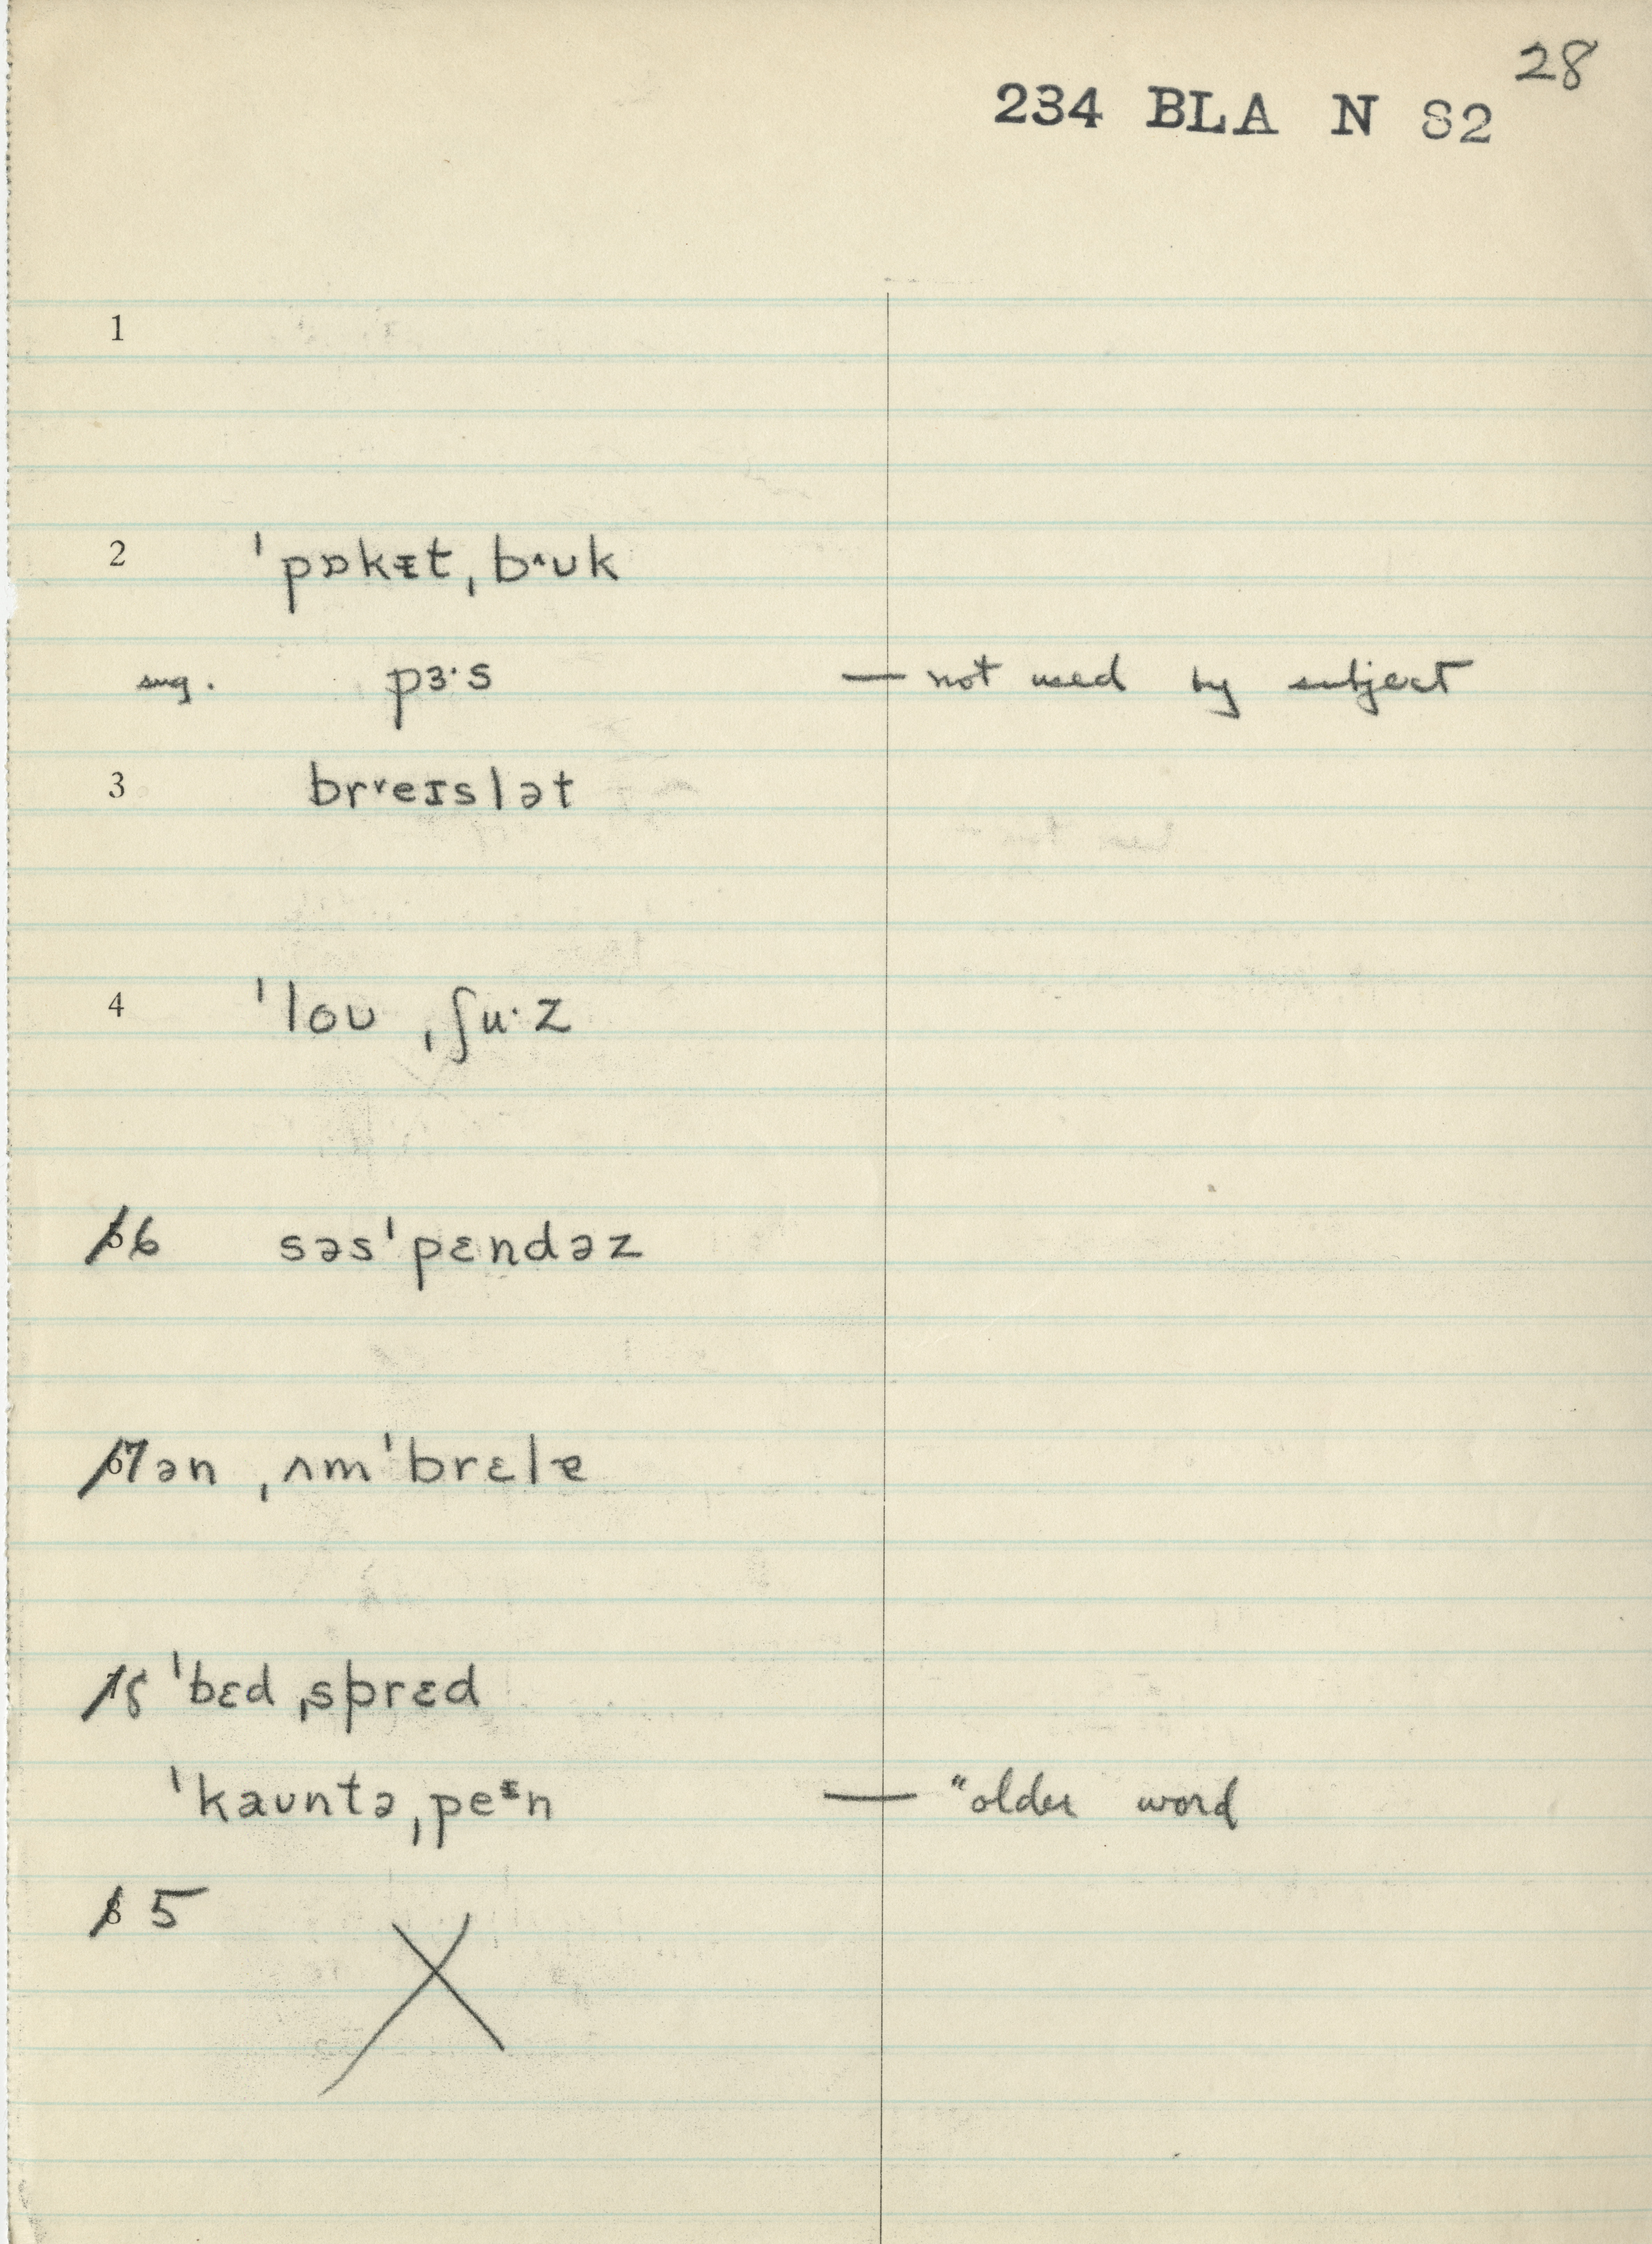 28
234 BLA N 82
1
2 ˈpɒkɪt ˌb˄ʊk
sug. pɜ·s — not used by subject
3 br˅eɪslət
4 ˈloʊ ˌʃu·z
5 6 səsˈpɛndəz
6 7 ən ˌʌmˈbrɛlɐ
7 8 ˈbɛd ˌsprɛd
ˈkaʊntə ˌpeᶦn — "older word
8 5
X